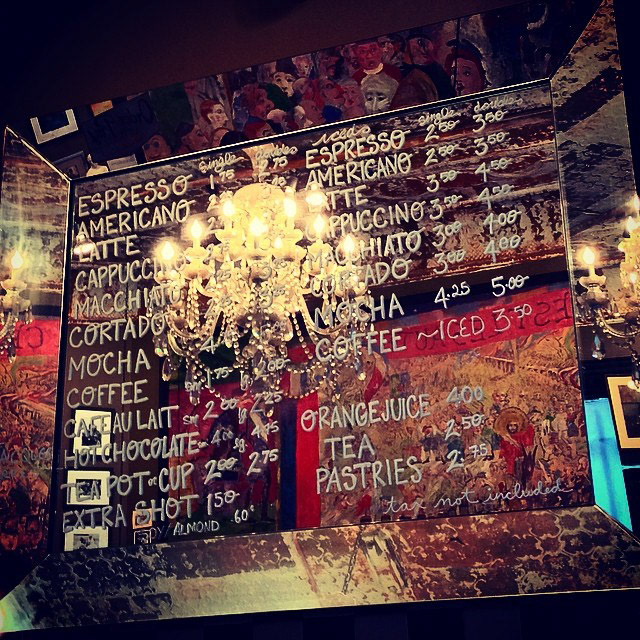 single double
ESPRESSO 1.75
AMERICANO
LATTE
CAPPUCCI
MACCHIATO
CORTADO
MOCHA
COFFEE sm 1.75 lg 2.00
CAFE AU LAIT sm 2.00 lg 2.25
HOT CHOCOLATE
TEA POT or CUP 2.00 2.75
EXTRA SHOT 1.50
SOY/ALMOND .60
iced
single double
ESPRESSO 2.50 3.50
AMERICANO 2.50 3.50
TTE 3.50 4.50
PPUCCINO 3.50 4.50
CCHIATO 3.00 4.00
TADO 3.00 4.00
MOCHA 4.25 5.00
COFFEE ~ICED 3.50
ORANGEJUICE 4.00
TEA 2.50
PASTRIES 2.75
tax not included